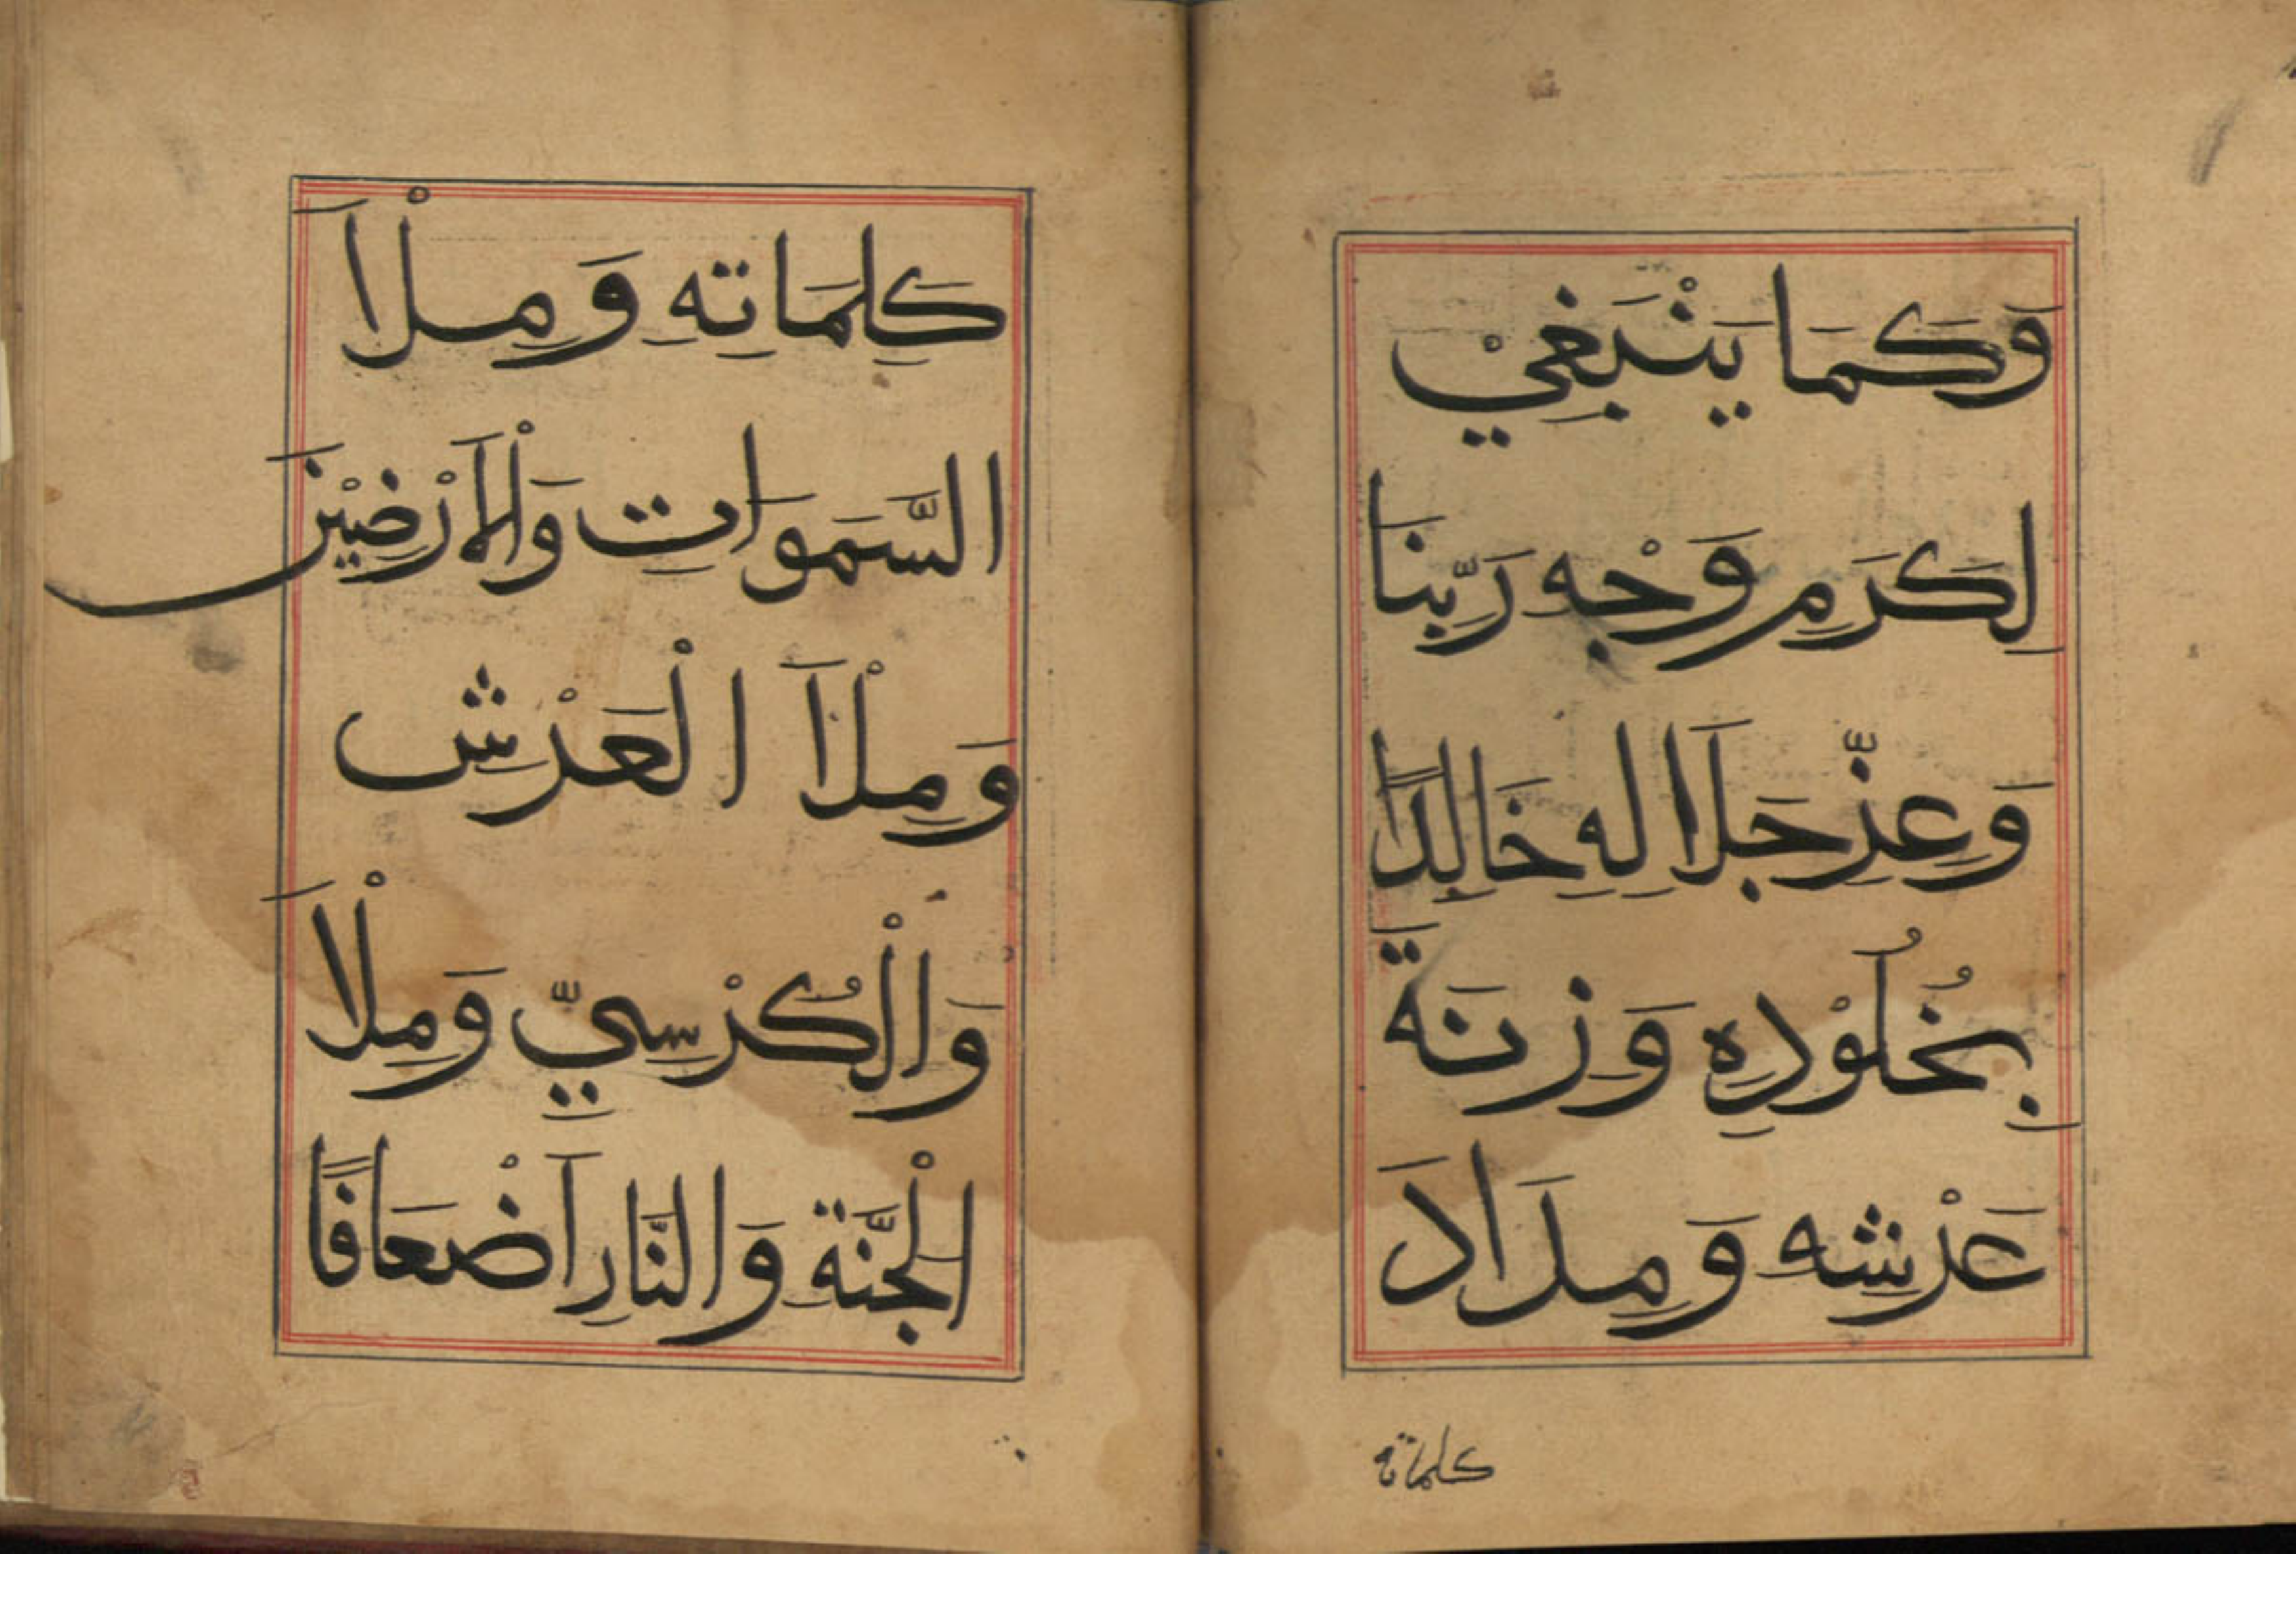 وَكَمَا يَنْبَغِيْ
لِكَرَمِ وَجْهِ رَبِّنَا
وَعِزِّ جَلَالِهِ خَالِدًا
بِخُلُوْدِهِ وَزِنَةَ
عَرْشِهِ وَمِدَادَ
كلماته
كَلِمَاتِهِ وَمِلْأَ
السَّمَوَاتِ وَالْأَرْضِيْنَ
وَمِلْأَ الْعَرْشِ
وَالْكُرْسِيِّ وَمِلْأَ
الْجَنَّةِ وَالنَّارِ أَضْعَافًا